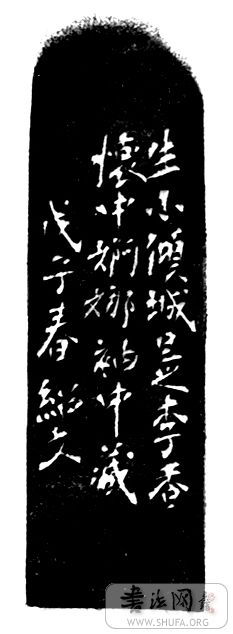 生小傾城是李香
懷中婀娜袖中藏
戊子春
書法网
WWW.SHUFA.ORG